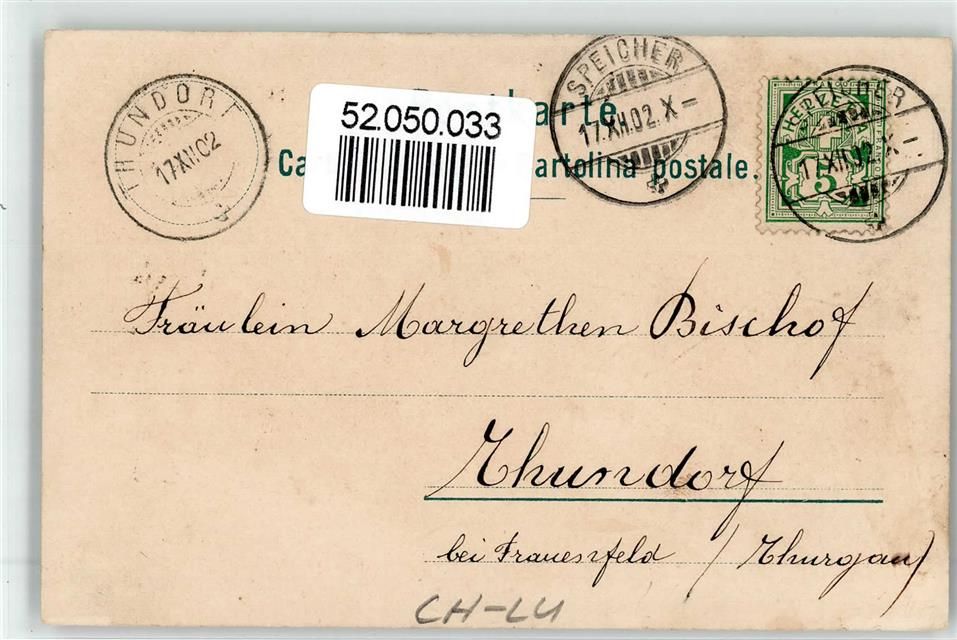 THUNDORF
17 XII.02
52.050.033
SPEICHER
17.XII.02.X–
karte
Ca
artolina postale.
HELVETIA
5
Fräulein Margrethen Bischof
Thundorf
bei Frauenfeld (Thurgau)
CH-LU